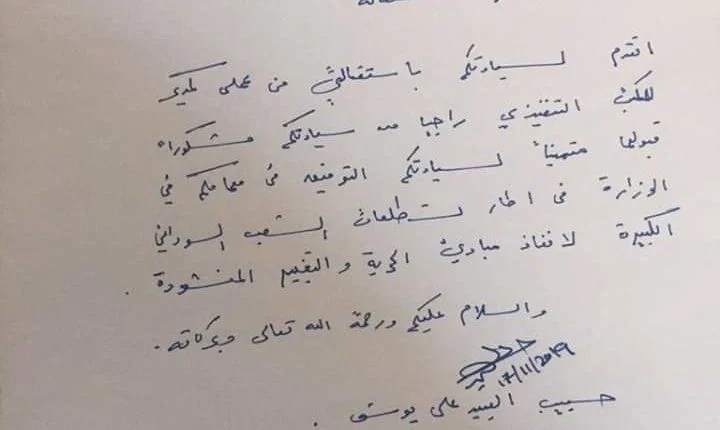 اتقدم لسيادتكم باستقالتي من عملى كمدير
للمكتب التنفيذي راجيا من سيادتكم مشكوراً
قبولها متمنياً لسيادتكم التوفيق في مهامكم في
الوزارة في اطار تطلعات الشعب السوداني
الكبيرة لانفاذ مبادئ الحرية والتغيير المنشودة .
والسلام عليكم ورحمة الله تعالى وبركاته .
17/11/2019
حسيب السيد على يوسف .